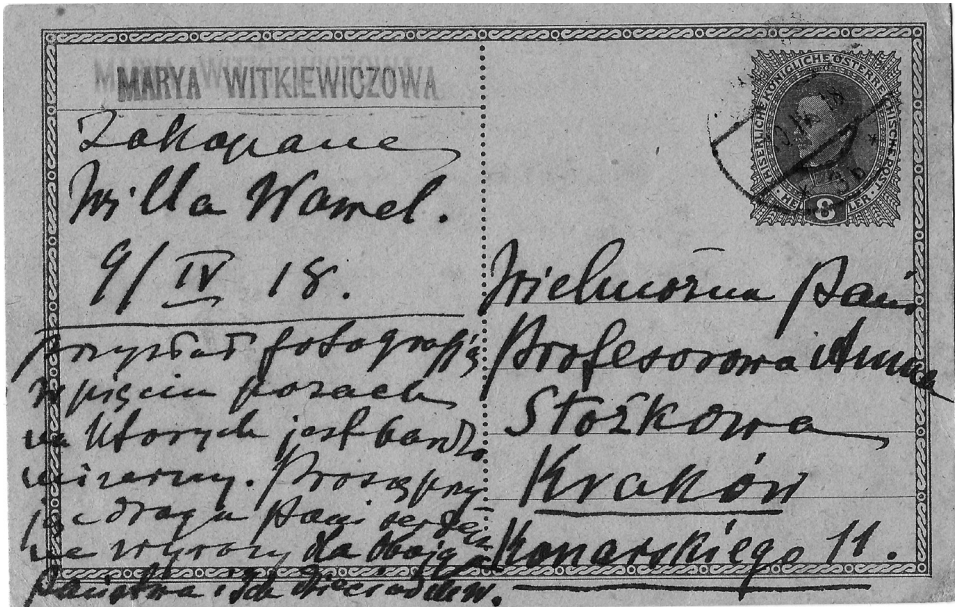 MARYA WITKIEWICZOWA
Zakopane
Willa Wawel.
9/IV 18.
przysłał fotografję
w pięciu pozach
na których jest bardzo
mizerny. Proszę przy
jąć droga Pani serdecz
ne wyrazy dla obojga
Państwa i Ich dzieciaków.
KAISERLICHE KÖNIGLICHE ÖSTERREICHISCHE POST
8
HELLER
Wielmożna Pani
Profesorowa Anna
Stożkowa
Kraków
Konarskiego 11.